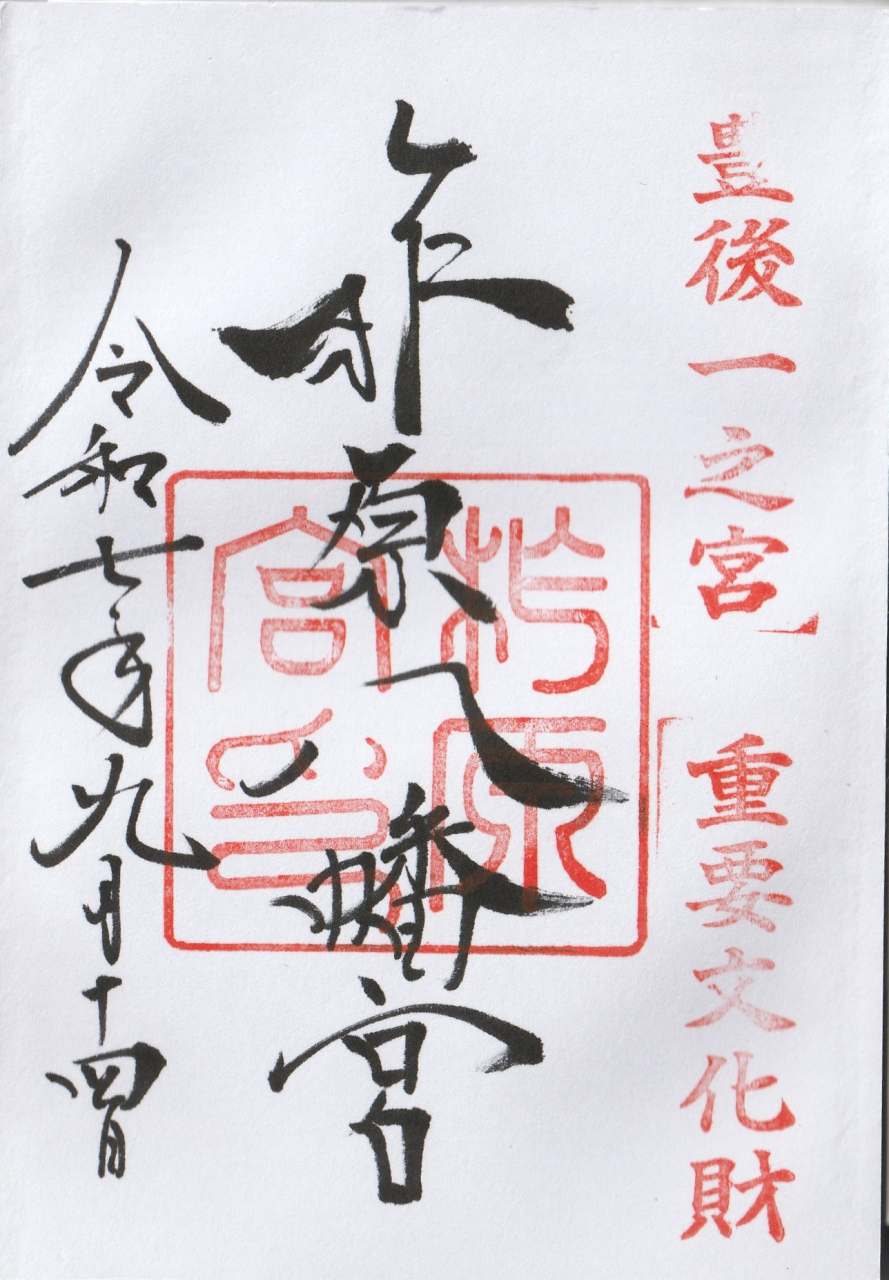 豊後一之宮 重要文化財
柞原八幡宮
柞原
宮印
令和七年九月十四日